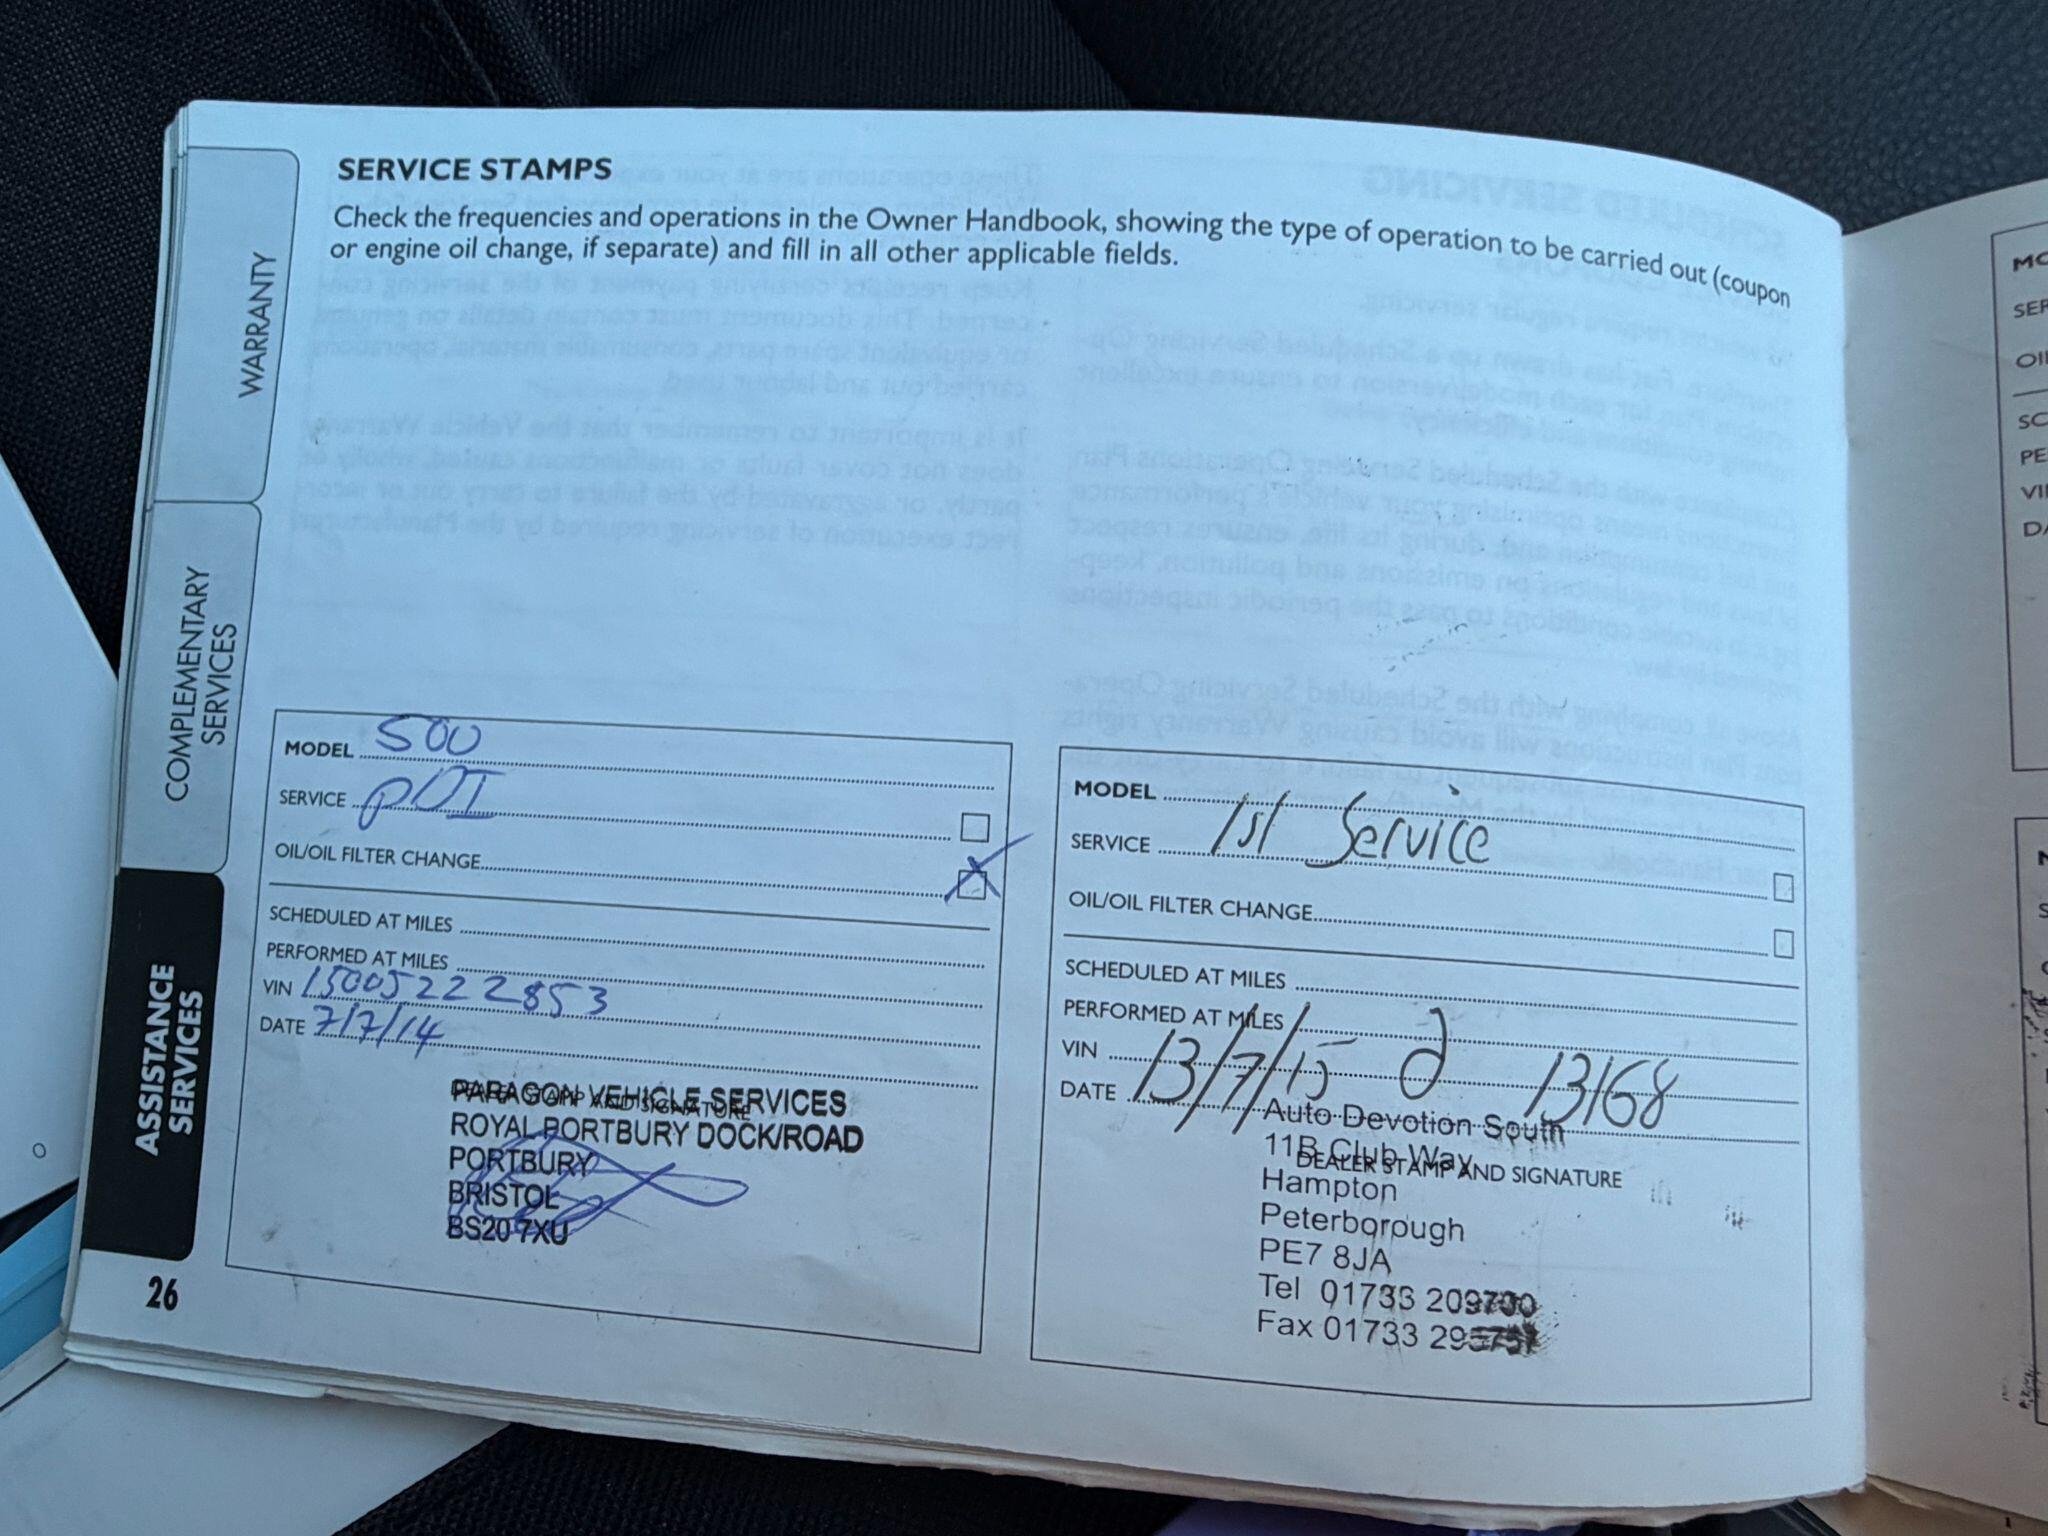 SERVICE STAMPS
Check the frequencies and operations in the Owner Handbook, showing the type of operation to be carried out (coupon
or engine oil change, if separate) and fill in all other applicable fields.
WARRANTY
COMPLEMENTARY
SERVICES
ASSISTANCE
SERVICES
26
MODEL 500
SERVICE PDI
OIL/OIL FILTER CHANGE X
SCHEDULED AT MILES
PERFORMED AT MILES
VIN 15005222853
DATE 7/7/14
DEALER STAMP AND SIGNATURE
PARAGON VEHICLE SERVICES
ROYAL PORTBURY DOCK/ROAD
PORTBURY
BRISTOL
BS20 7XU
MODEL
SERVICE 1st Service
OIL/OIL FILTER CHANGE
SCHEDULED AT MILES
PERFORMED AT MILES
VIN
DATE 13/7/15 @ 13168
Auto Devotion South
11B Club Way
DEALER STAMP AND SIGNATURE
Hampton
Peterborough
PE7 8JA
Tel 01733 209700
Fax 01733